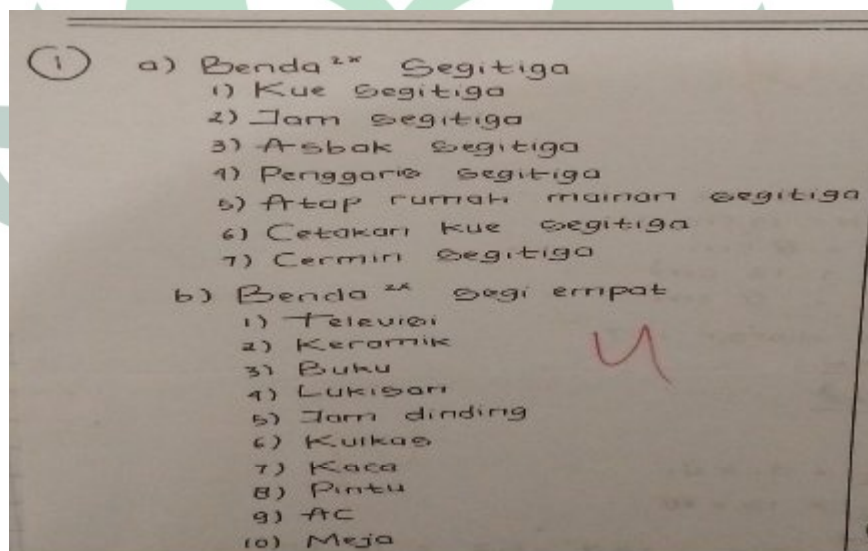 1 a) Benda 2x Segitiga
1) Kue Segitiga
2) Jam segitiga
3) Asbak segitiga
4) Penggaris segitiga
5) Atap rumah mainan segitiga
6) Cetakan kue segitiga
7) Cermin segitiga
b) Benda 2x segi empat
1) Televisi
2) Keramik
3) Buku
4) Lukisan
5) Jam dinding
6) Kulkas
7) Kaca
8) Pintu
9) AC
10) Meja